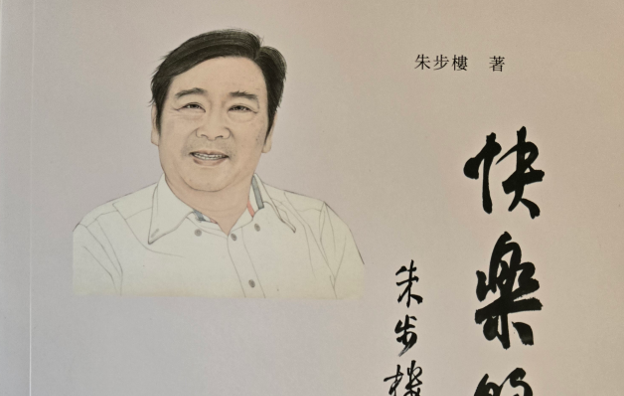 朱步樓 著
快樂的
朱步樓